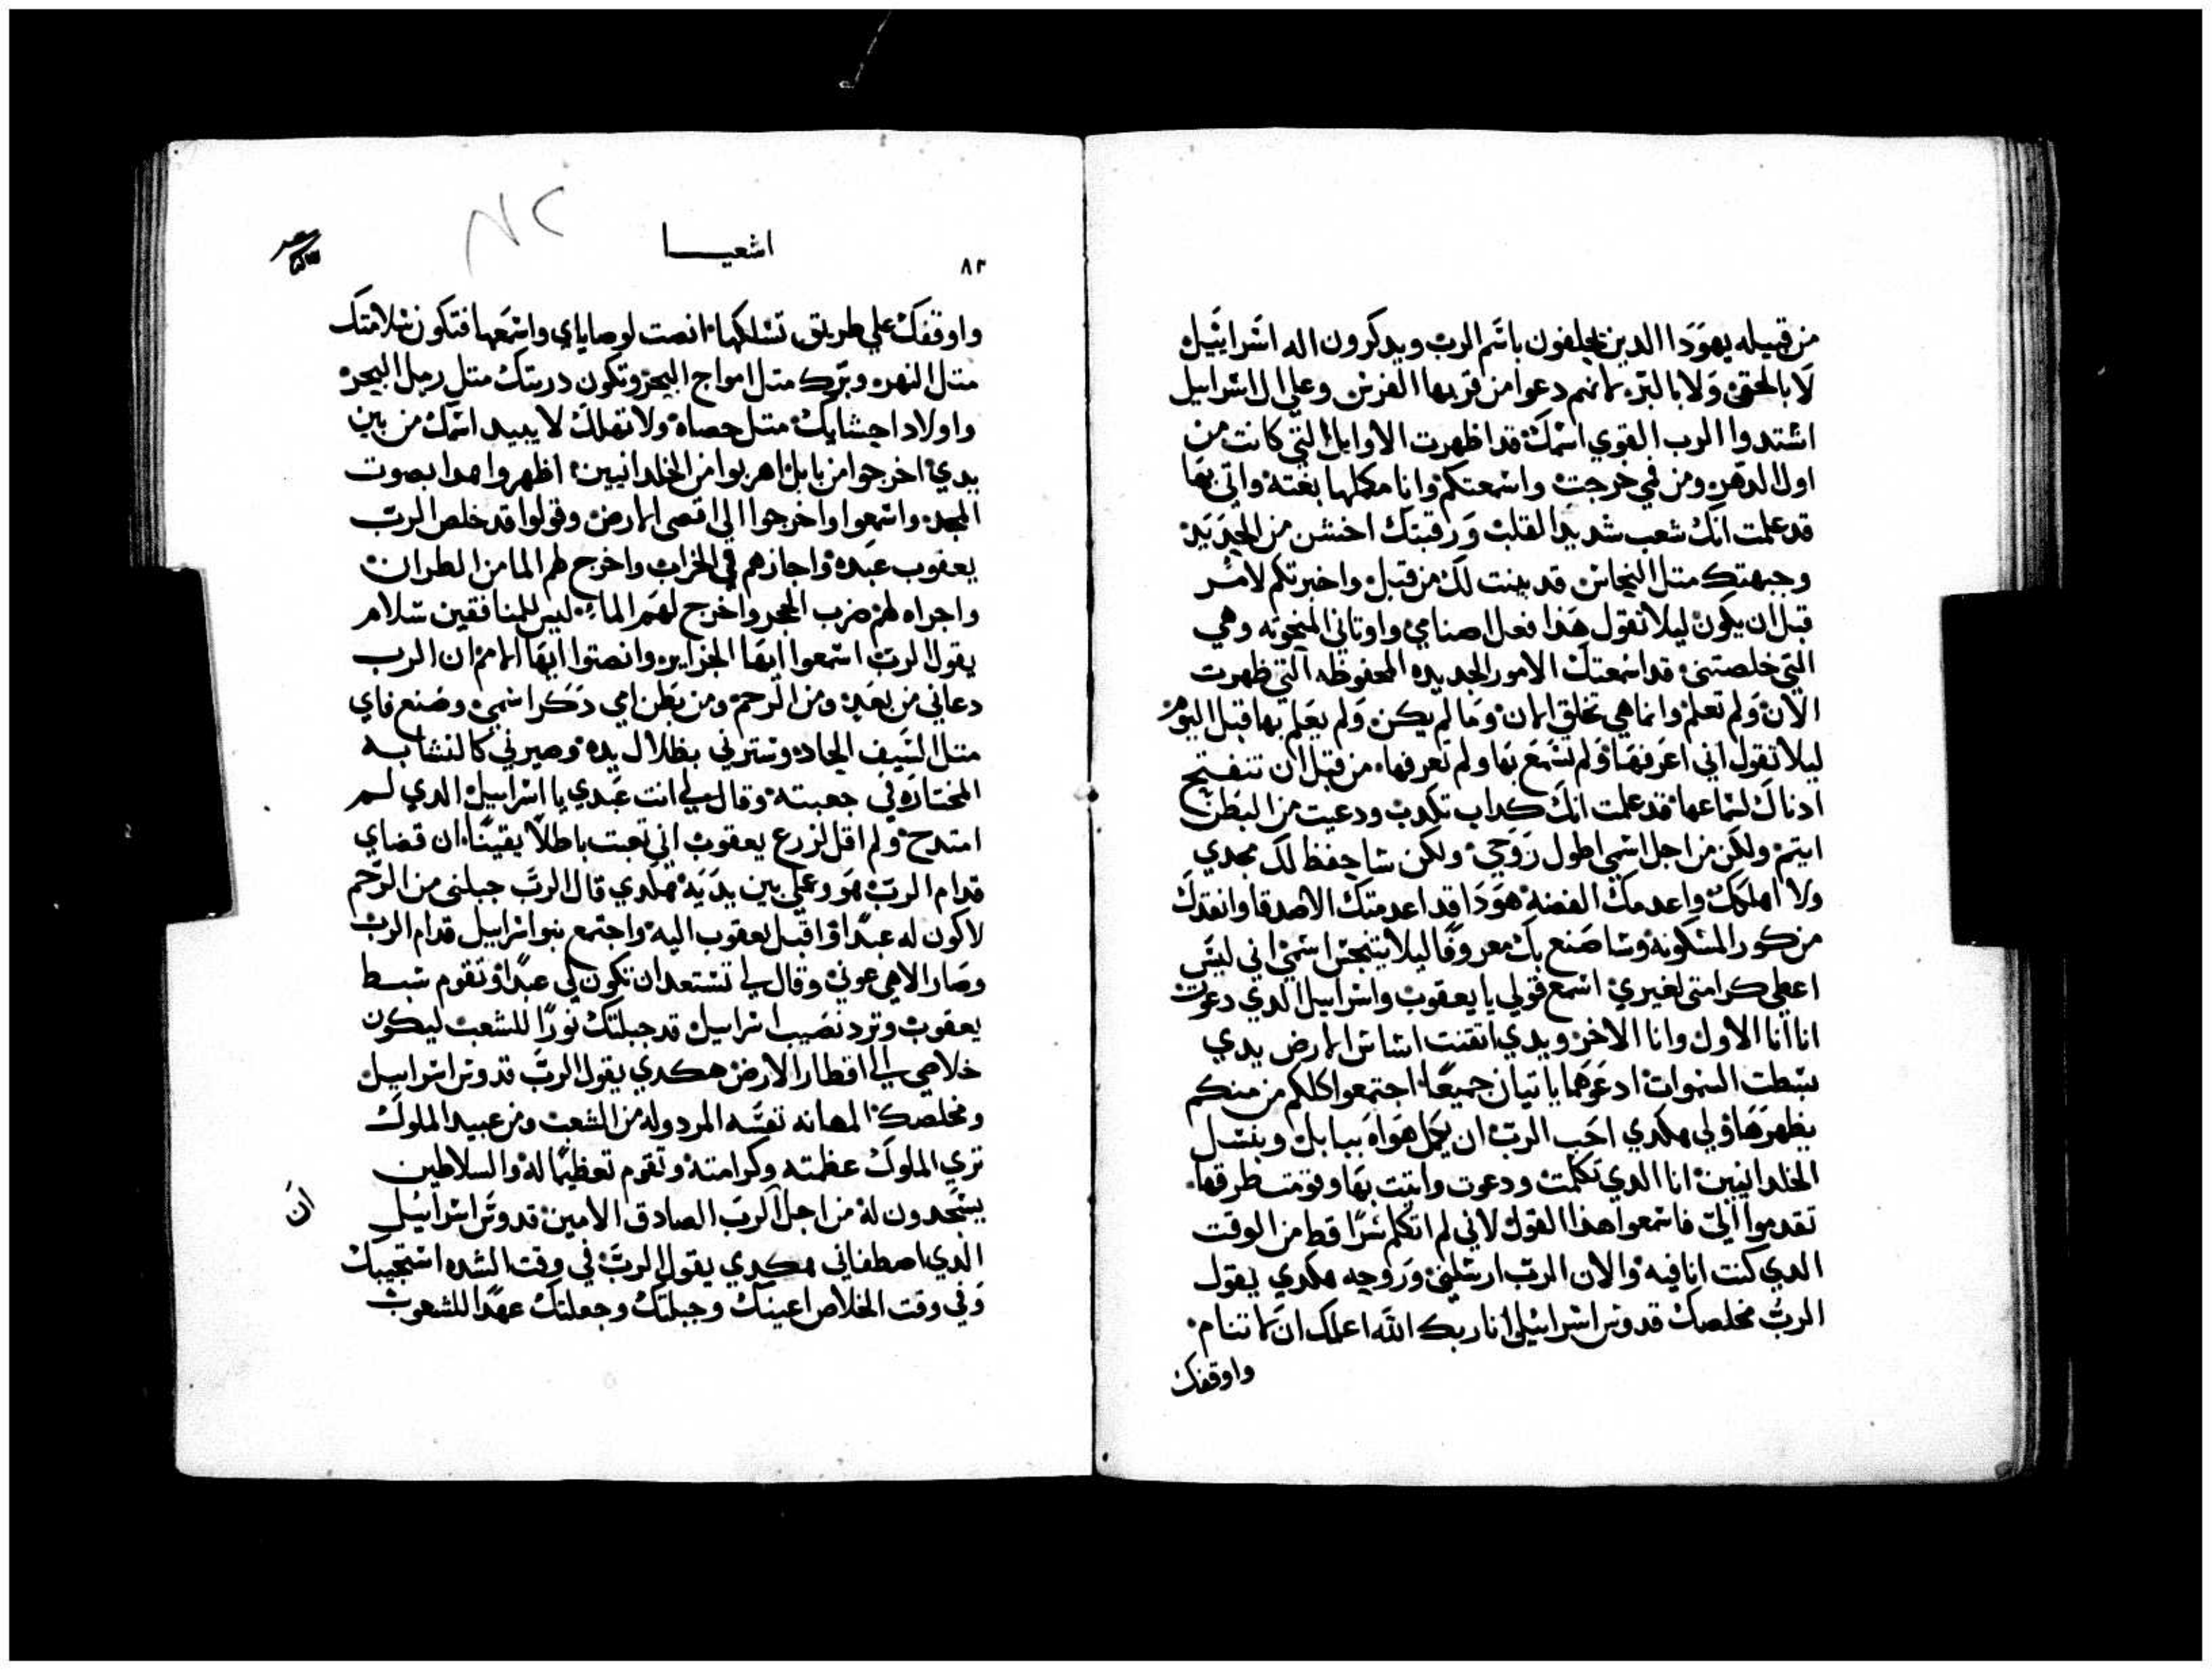 من قبيله يهودا الدين يحلفون باسم الرب ويدكرون اله اسراييل
لا بالحق ولا بالبر لانهم دعوا من قريه القدس وعلي ال اسراييل
اشتدوا الرب القوي اسمك قد اظهرت الاوايل التي كانت من
اول الدهر ومن فمي خرجت واسمعتكم وانا مكملها بغته واتي بها
قد علمت انك شعب شديد القلب ورقبتك اخشن من الحديد
وجبهتك متل النحاس قد بينت لك من قبل واخبرتكم لامر
قبل ان يكون ليلا تقول هذا فعل اصنامي واوتاني المنحوته وهي
التي خلصتني قد اسمعتك الامور الجديده المحفوظه التي ظهرت
الان ولم تعلم وانما هي تخلق الان وما لم يكن ولم يعلم بها قبل اليوم
ليلا تقول اني اعرفها ولم تسمع بها ولم تعرفها من قبل ان تنفتح
ادناك لسماعها قد علمت انك كداب تكدب ودعيت من البطن
ايتم ولكن من اجل اسمي اطول روحي ولكن ساحفظ لك مجدي
ولا اهلكك واعدمك الفضه هودا قد اعدمتك الاصدقا وانقدك
من كور المسكونه وساصنع بك معروفا ليلا يتنجس اسمي اني ليس
اعطي كرامتي لغيري اسمع قولي يا يعقوب واسراييل الدي دعوت
انا انا الاول وانا الاخر ويدي اتقنت اساس الارض يدي
بسطت السموات ادعوهما ياتيان جميعا اجتمعوا كلكم من منكم
يظهر هاولي هكدي احب الرب ان يكمل هواه ببابل وبنسل
الخلدانيين انا الدي تكلمت ودعوت واتيت بها وقومت طرقها
تقدموا الي فاسمعوا هذا القول لاني لم اتكلم سرا قط من الوقت
الدي كنت انا فيه والان الرب ارسلني وروحه هكدي يقول
الرب مخلصك قدوس اسراييل انا ربك الله اعلمك ان لا تنام
واوقفك
اشعيا
٨٢
واوقفك علي طريق تسلكها انصت لوصاياي واسمعها فتكون سلامتك
متل النهر وبرك متل امواج البحر وتكون دريتك متل رمل البحر
واولاد احشايك متل حصاه ولا تهلك لا يبيد اسمك من بين
يدي اخرجوا من بابل اهربوا من الخلدانيين اظهروا هدا بصوت
المجد واسمعوا واخرجوا الي اقصي الارض وقولوا قد خلص الرب
يعقوب عبده واجازهم في الخراب واخرج لهم الما من الطران
واجراه لهم ضرب الحجر واخرج لهم الما ليس للمنافقين سلام
يقول الرب اسمعوا ايها الجزاير وانصتوا ايها الامم ان الرب
دعاني من بعيد ومن الرحم ومن بطن امي ذكر اسمي وصنع فاي
متل السيف الحاد وسترني بظلال يده وصيرني كالنشابه
المختاره في جعبته وقال لي انت عبدي يا اسراييل الدي لم
امتدح ولم اقل لزرع يعقوب اني تعبت باطلا يقينا ان قضاي
قدام الرب هو وعملي بين يديه هكدي قال الرب جبلني من الرحم
لاكون له عبدا واقبل يعقوب اليه واجتمع بنو اسراييل قدام الرب
وصار الاهي عوني وقال لي تستعد ان تكون لي عبدا وتقوم سبط
يعقوب وترد نصيب اسراييل قد جبلتك نورا للشعب ليكون
خلاصي الي اقطار الارض هكدي يقول الرب قدوس اسراييل
ومخلصك المهانه نفسه المردوله من الشعب ومن عبيد الملوك
تري الملوك عظمته وكرامته وتقوم تعظيما له والسلاطين
يسجدون له من اجل الرب الصادق الامين قدوس اسراييل
ان
الدي اصطفاني هكدي يقول الرب في وقت الشده استجيبك
وفي وقت الخلاص اعينك وجبلتك وجعلتك عهدا للشعوب